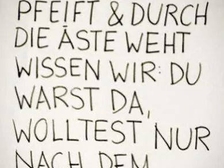 PFEIFT & DURCH
DIE ÄSTE WEHT
WISSEN WIR: DU
WARST DA,
WOLLTEST NUR
NACH DEM